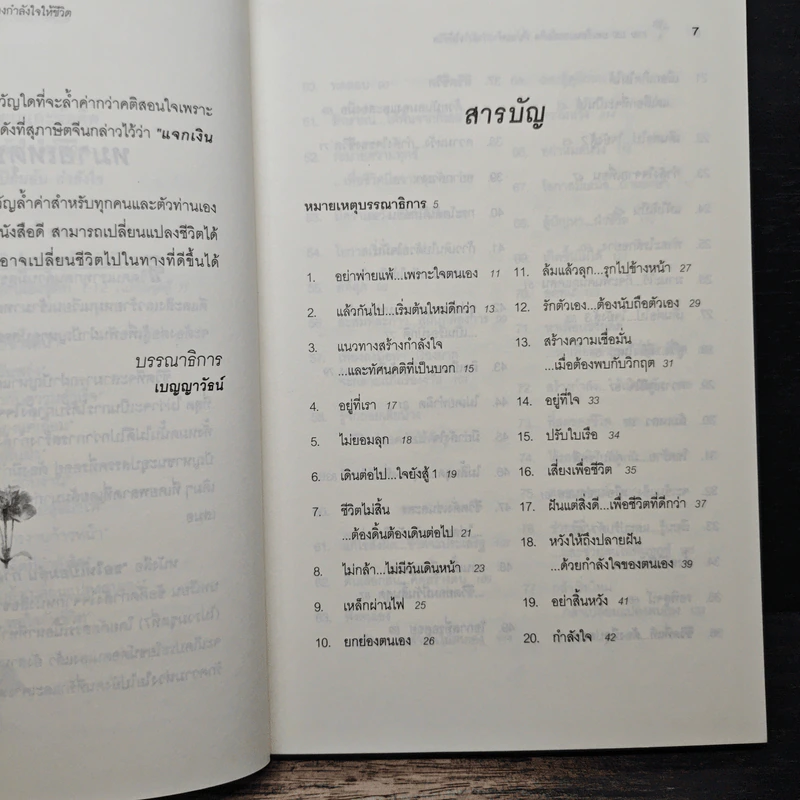 องกำลังใจให้ชีวิต
วัญใดที่จะล้ำค่ากว่าคติสอนใจเพราะ
ดังที่สุภาษิตจีนกล่าวไว้ว่า "แจกเงิน
วัญล้ำค่าสำหรับทุกคนและตัวท่านเอง
นังสือดี สามารถเปลี่ยนแปลงชีวิตได้
อาจเปลี่ยนชีวิตไปในทางที่ดีขึ้นได้
บรรณาธิการ
เบญญาวัธน์
7
สารบัญ
หมายเหตุบรรณาธิการ 5
1. อย่าพ่ายแพ้...เพราะใจตนเอง 11
2. แล้วกันไป...เริ่มต้นใหม่ดีกว่า 13
3. แนวทางสร้างกำลังใจ
...และทัศนคติที่เป็นบวก 15
4. อยู่ที่เรา 17
5. ไม่ยอมลุก 18
6. เดินต่อไป...ใจยังสู้ 1 19
7. ชีวิตไม่สิ้น
...ต้องดิ้นต้องเดินต่อไป 21
8. ไม่กล้า...ไม่มีวันเดินหน้า 23
9. เหล็กผ่านไฟ 25
10. ยกย่องตนเอง 26
11. ล้มแล้วลุก...รุกไปข้างหน้า 27
12. รักตัวเอง...ต้องนับถือตัวเอง 29
13. สร้างความเชื่อมั่น
...เมื่อต้องพบกับวิกฤต 31
14. อยู่ที่ใจ 33
15. ปรับใบเรือ 34
16. เสี่ยงเพื่อชีวิต 35
17. ฝันแต่สิ่งดี...เพื่อชีวิตที่ดีกว่า 37
18. หวังให้ถึงปลายฝัน
...ด้วยกำลังใจของตนเอง 39
19. อย่าสิ้นหวัง 41
20. กำลังใจ 42